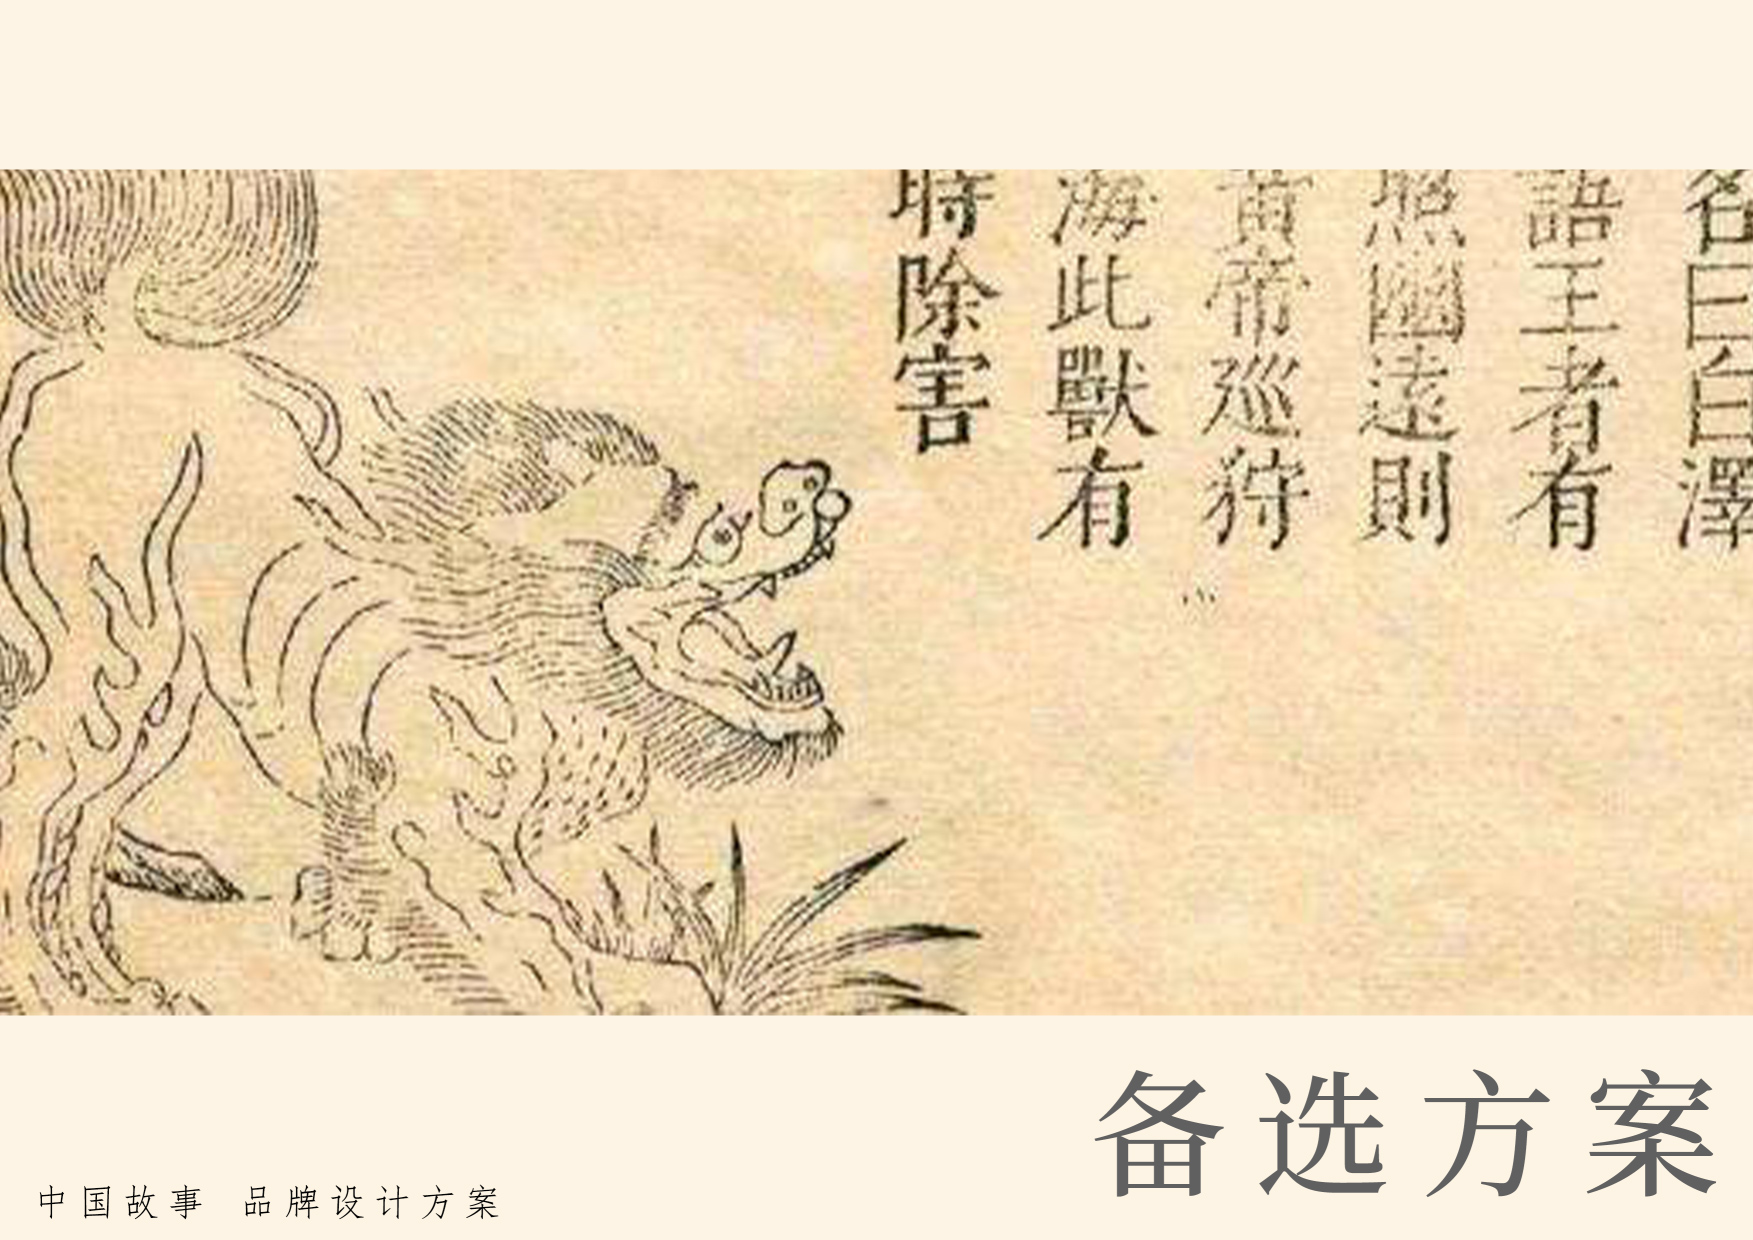 名曰白澤
語王者有
照幽遠則
黄帝巡狩
海此獸有
時除害
备选方案
中国故事 品牌设计方案